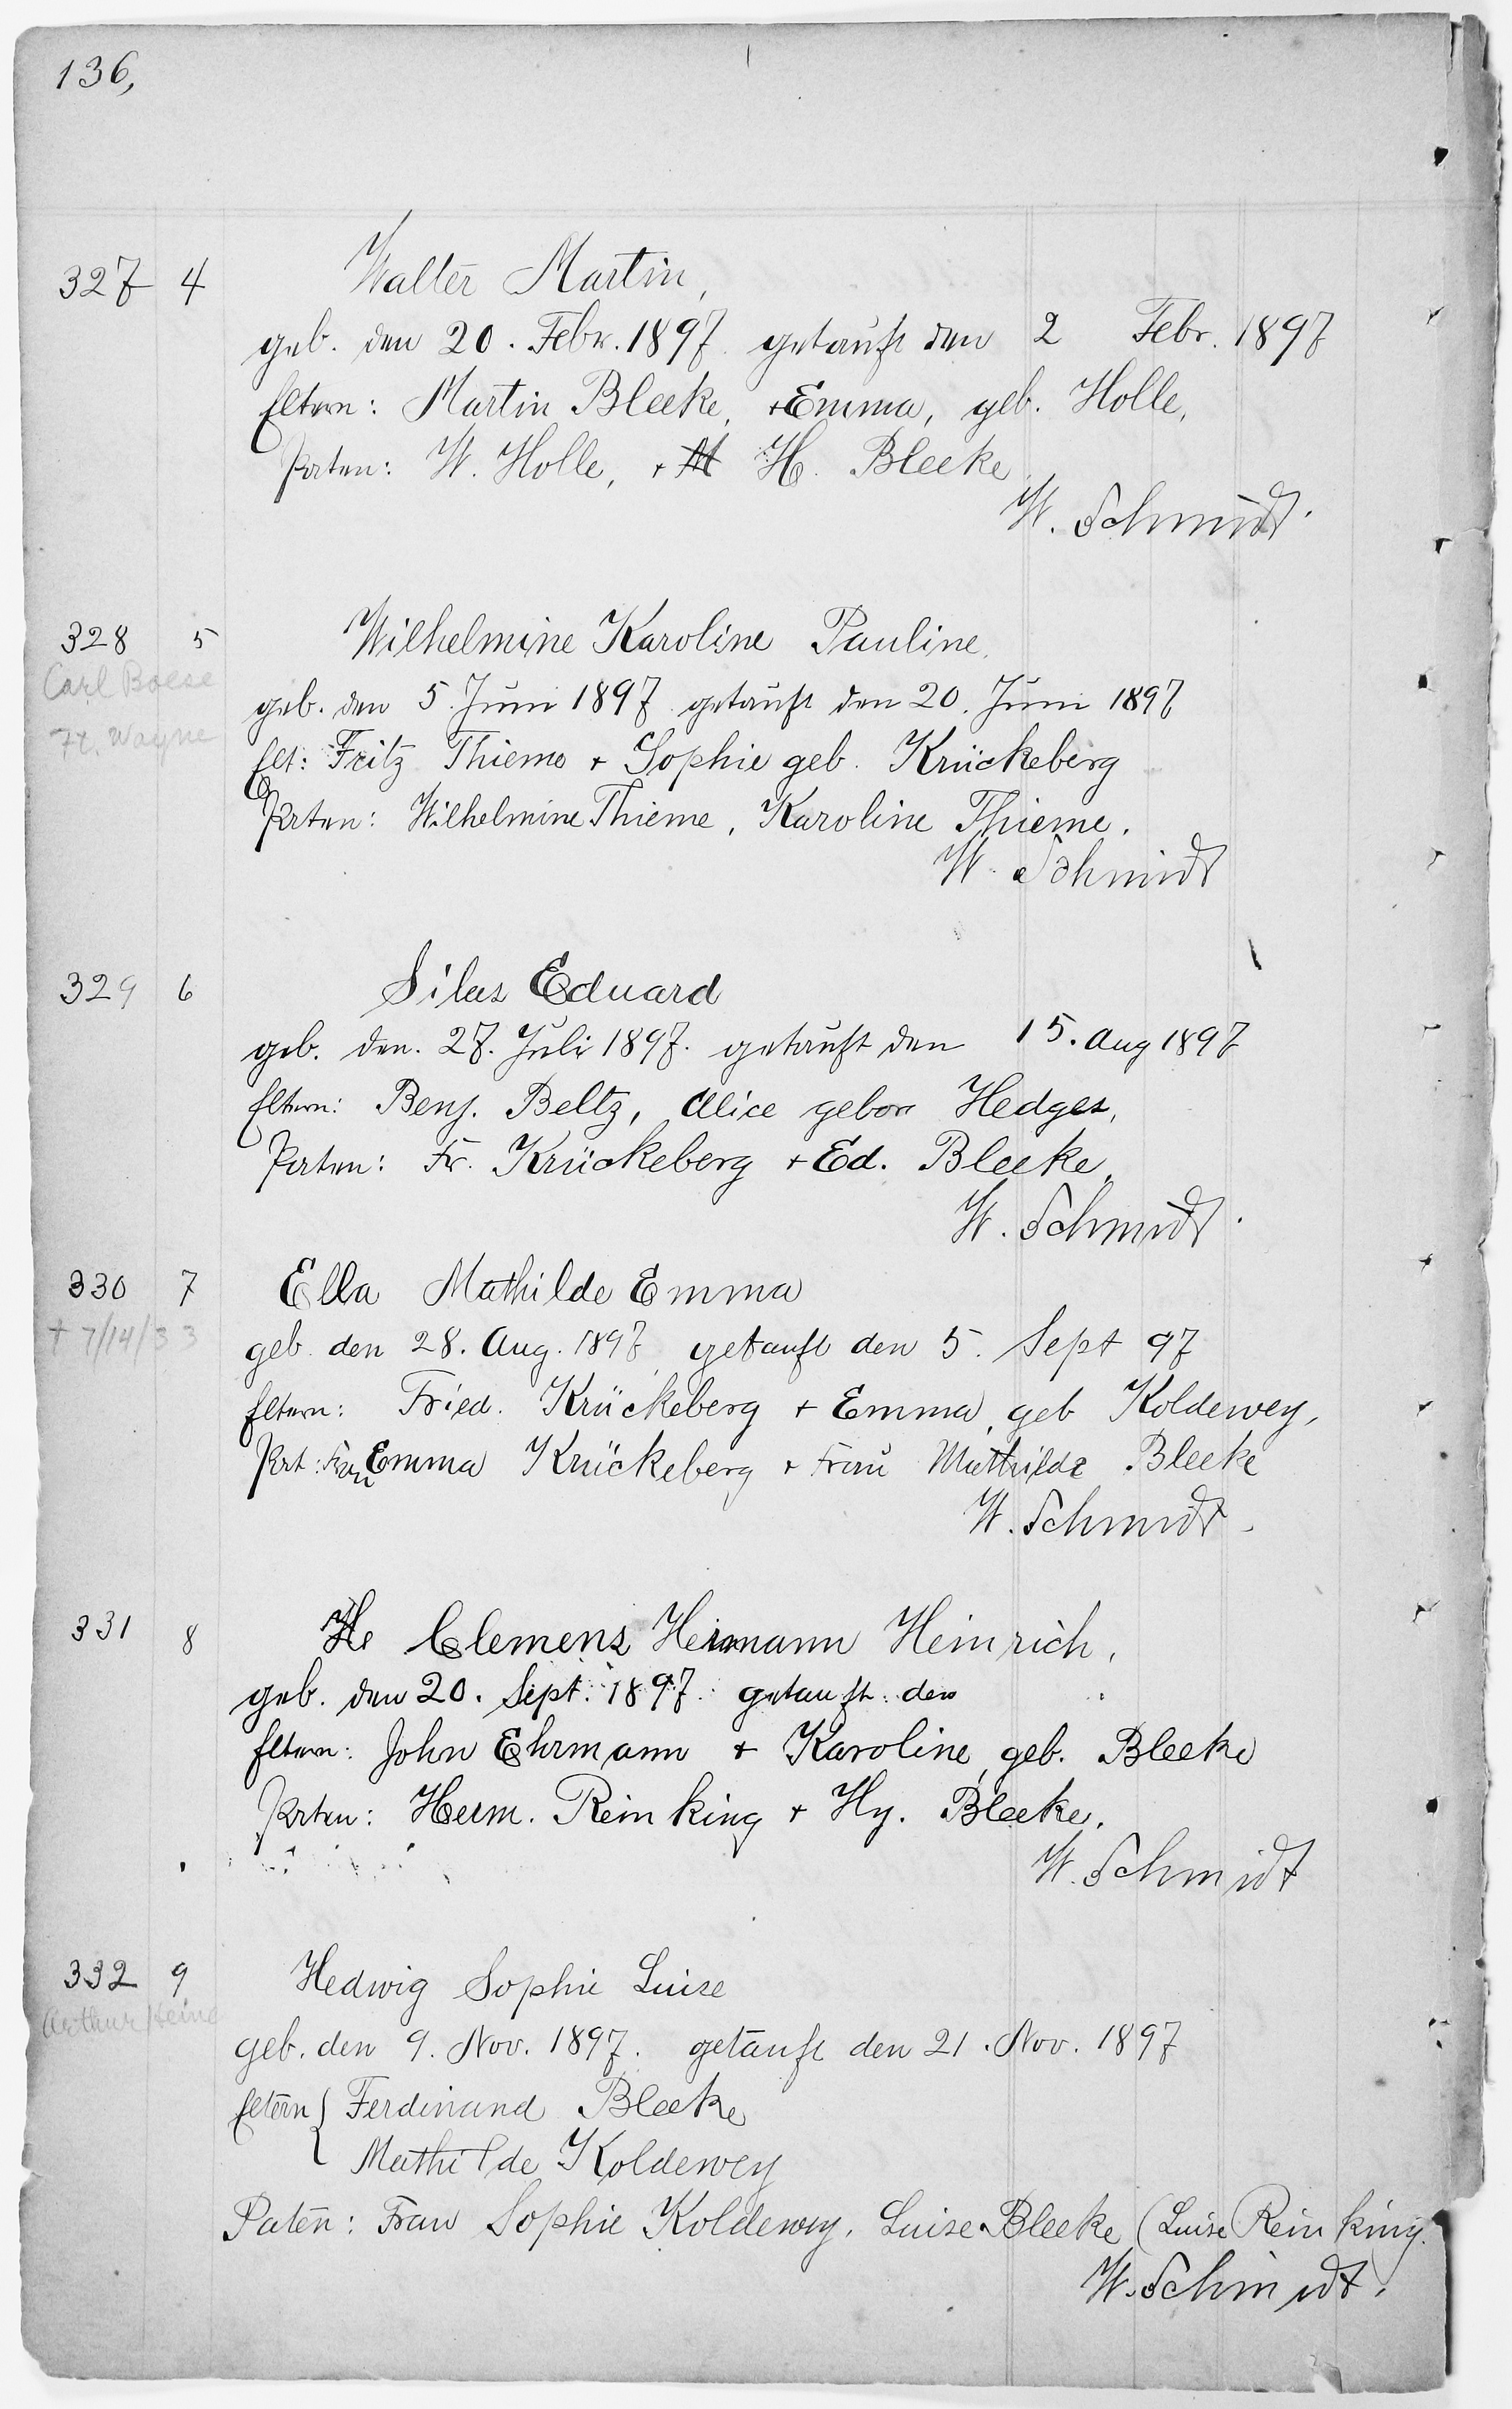 136,
327 4 Walter Martin,
geb. den 20. Febr. 1897 getauft den 2 Febr. 1897
Eltern: Martin Bleeke, + Emma, geb. Holle,
Paten: W. Holle, + H. Bleeke
W. Schmidt.
328 5 Wilhelmine Karoline Pauline.
Carl Boese
geb. den 5. Juni 1897 getauft den 20. Juni 1897
Ft. Wayne
Elt: Fritz Thieme + Sophie geb. Krückeberg
Paten: Wilhelmine Thieme, Karoline Thieme.
W. Schmidt
329 6 Silas Eduard
geb. den. 27. Juli 1897. getauft den 15. Aug 1897
Eltern: Benj. Beltz, Alice gebor Hedges,
Paten: Fr. Krückeberg + Ed. Bleeke,
W. Schmidt.
330 7 Ella Mathilde Emma
+ 7/14/33
geb. den 28. Aug. 1897 getauft den 5. Sept 97
Eltern: Fried. Krückeberg + Emma, geb Koldewey,
Pat: Frau Emma Krückeberg + Frau Mathilde Bleeke
W. Schmidt.
331 8 He Clemens Hermann Heinrich,
geb. den 20. Sept. 1897. getauft den
Eltern: John Ehrmann + Karoline, geb. Bleeke
Paten: Herm. Reinking + Hy. Bleeke.
W. Schmidt
332 9 Hedwig Sophie Luise
Arthur Heine
geb. den 9. Nov. 1897. getauft den 21. Nov. 1897
Eltern { Ferdinand Bleeke
Mathilde Koldewey
Paten: Frau Sophie Koldewey, Luise Bleeke (Luise Reinking.
W. Schmidt.